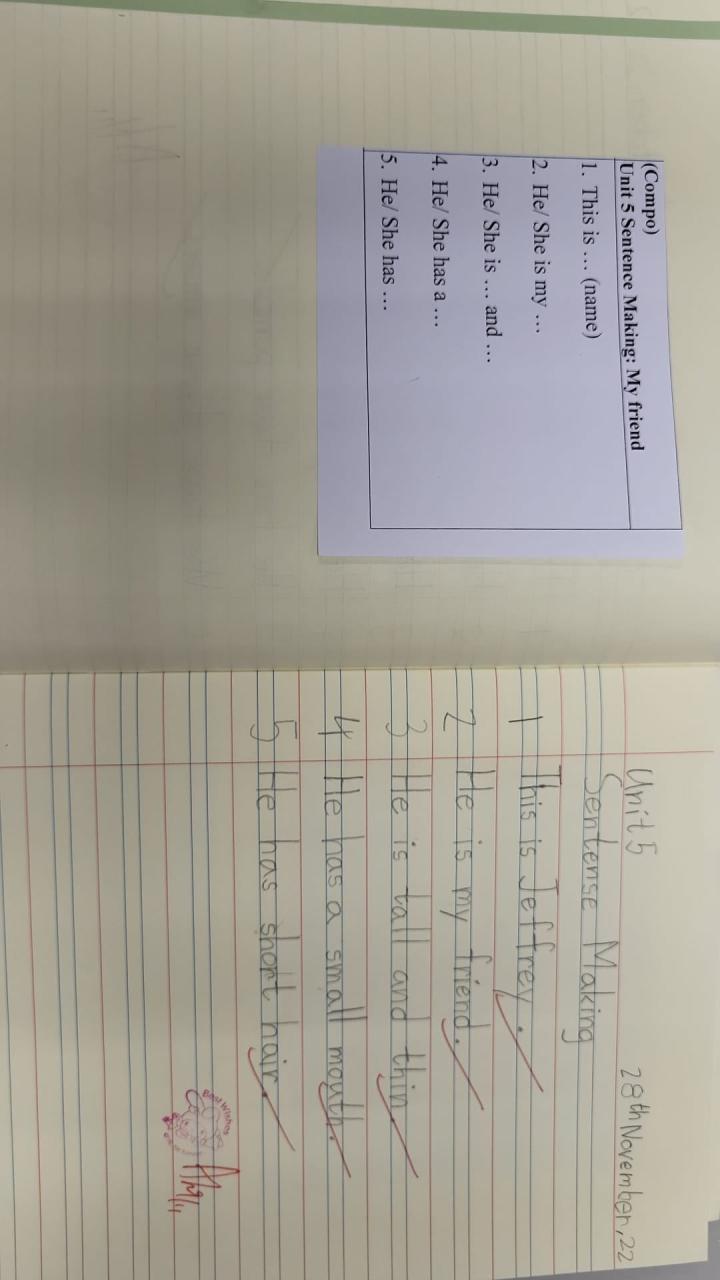 (Compo)
Unit 5 Sentence Making: My friend
1. This is ... (name)
2. He/ She is my ...
3. He/ She is ... and ...
4. He/ She has a ...
5. He/ She has ...
Unit 5 28th November, 22
Sentense Making
1 This is Jeffrey.
2 He is my friend.
3 He is tall and thin.
4 He has a small mouth.
5 He has short hair.
Best Wishes